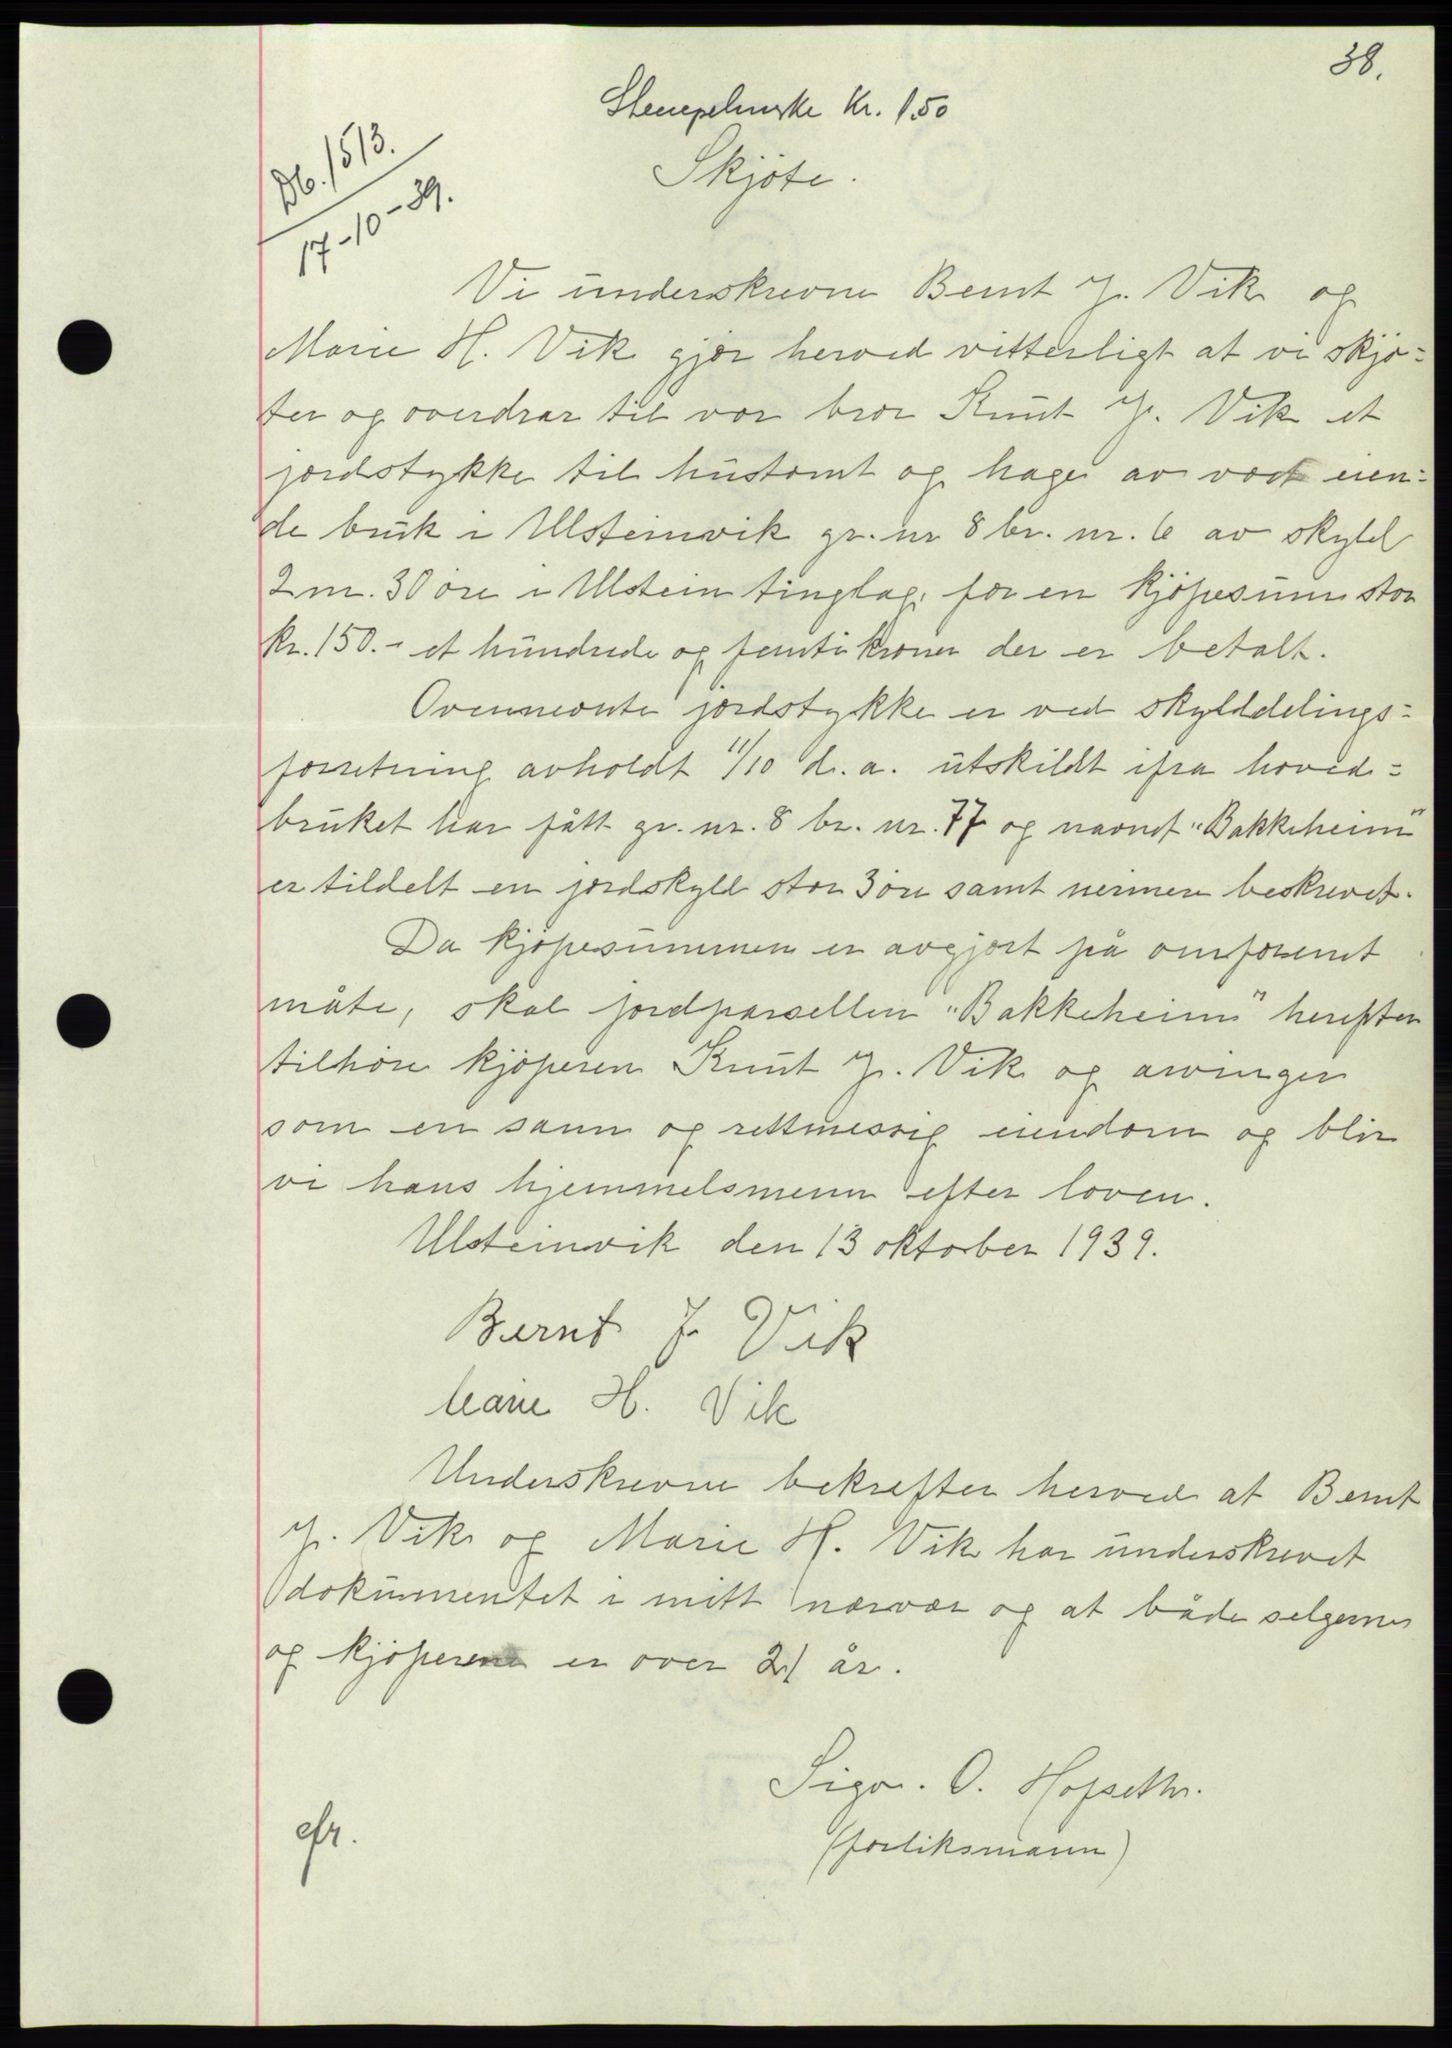 38.
Stempelmerke Kr. 1.50
Skjøte.
Db. 1513.
17-10-39.
Vi underskrevne Bernt J. Vik og
Marie H. Vik gjør herved vitterligt at vi skjø=
ter og overdrar til vor bror Knut J. Vik et
jordstykke til hustomt og hage av vort eien=
de bruk i Ulsteinvik gr. nr 8 br. nr. 6 av skyld
2 m. 30 øre i Ulstein tinglag, for en kjøpesum stor
kr. 150.- et hundrede og femti kroner der er betalt.
Ovennevnte jordstykke er ved skylddelings=
forretning avholdt 11/10 d. a. utskildt ifra hoved=
bruket har fått gr. nr. 8 br. nr. 77 og navnet "Bakkeheim"
er tildelt en jordskyld stor 3 øre samt nermere beskrevet.
Da kjøpesummen er avgjort på omforenet
måte, skal jordparsellen "Bakkeheim" herefter
tilhøre kjøperen Knut J. Vik og arvinger
som en sann og rettmessig eiendom og blir
vi hans hjemmelsmenn efter loven.
Ulsteinvik den 13 oktober 1939.
Bernt J Vik
Marie H. Vik
Underskrevne bekrefter herved at Bernt
J. Vik og Marie H. Vik har underskrevet
dokumentet i mitt nærvær og at både selgerne
og kjøperen er over 21 år.
Sigv. O. Hofseth.
(forliksmann)
efr.